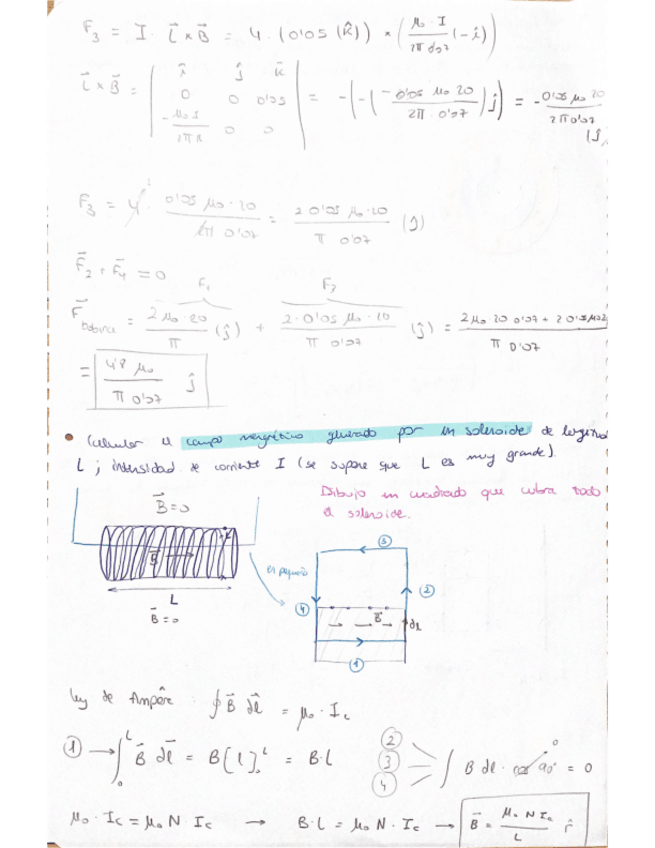 F₃ = I · L⃗ × B⃗ = 4 · (0'05 (k̂)) × (μ₀ · I / 2π 0'07 (-î))
L⃗ × B⃗ = | î ĵ k̂ ; 0 0 0'05 ; -μ₀ I / 2π R 0 0 | = -(-(-0'05 μ₀ 20 / 2π · 0'07) ĵ) = -0'05 μ₀ 20 / 2π 0'07 (ĵ)
F₃ = 4 · 0'05 μ₀ · 20 / 2π 0'07 = 2 0'05 μ₀ · 20 / π 0'07 (ĵ)
F⃗₂ + F⃗₄ = 0
F₁ F₃
F⃗ bobina = 2 μ₀ · 20 / π (ĵ) + 2 · 0'05 μ₀ · 20 / π 0'07 (ĵ) = 2 μ₀ 20 0'07 + 2 0'05 μ₀ 2 / π 0'07
= 4'8 μ₀ / π 0'07 ĵ
• Calcular el campo magnético generado por un solenoide de longitud
L ; intensidad de corriente I (se supone que L es muy grande).
Dibujo un cuadrado que cubra todo
el solenoide.
B⃗ = 0
B⃗
L
B⃗ = 0
en pequeño
③
②
④
B⃗
dl
①
Ley de Ampère : ∮ B⃗ dl⃗ = μ₀ · I꜀
① → ∫₀ᴸ B⃗ dl⃗ = B [l]₀ᴸ = B · L
② ③ ④ ∫ B dl · cos 90° = 0
0
μ₀ · I꜀ = μ₀ N · I꜀ → B · L = μ₀ N · I꜀ → B⃗ = μ₀ N I꜀ / L r̂